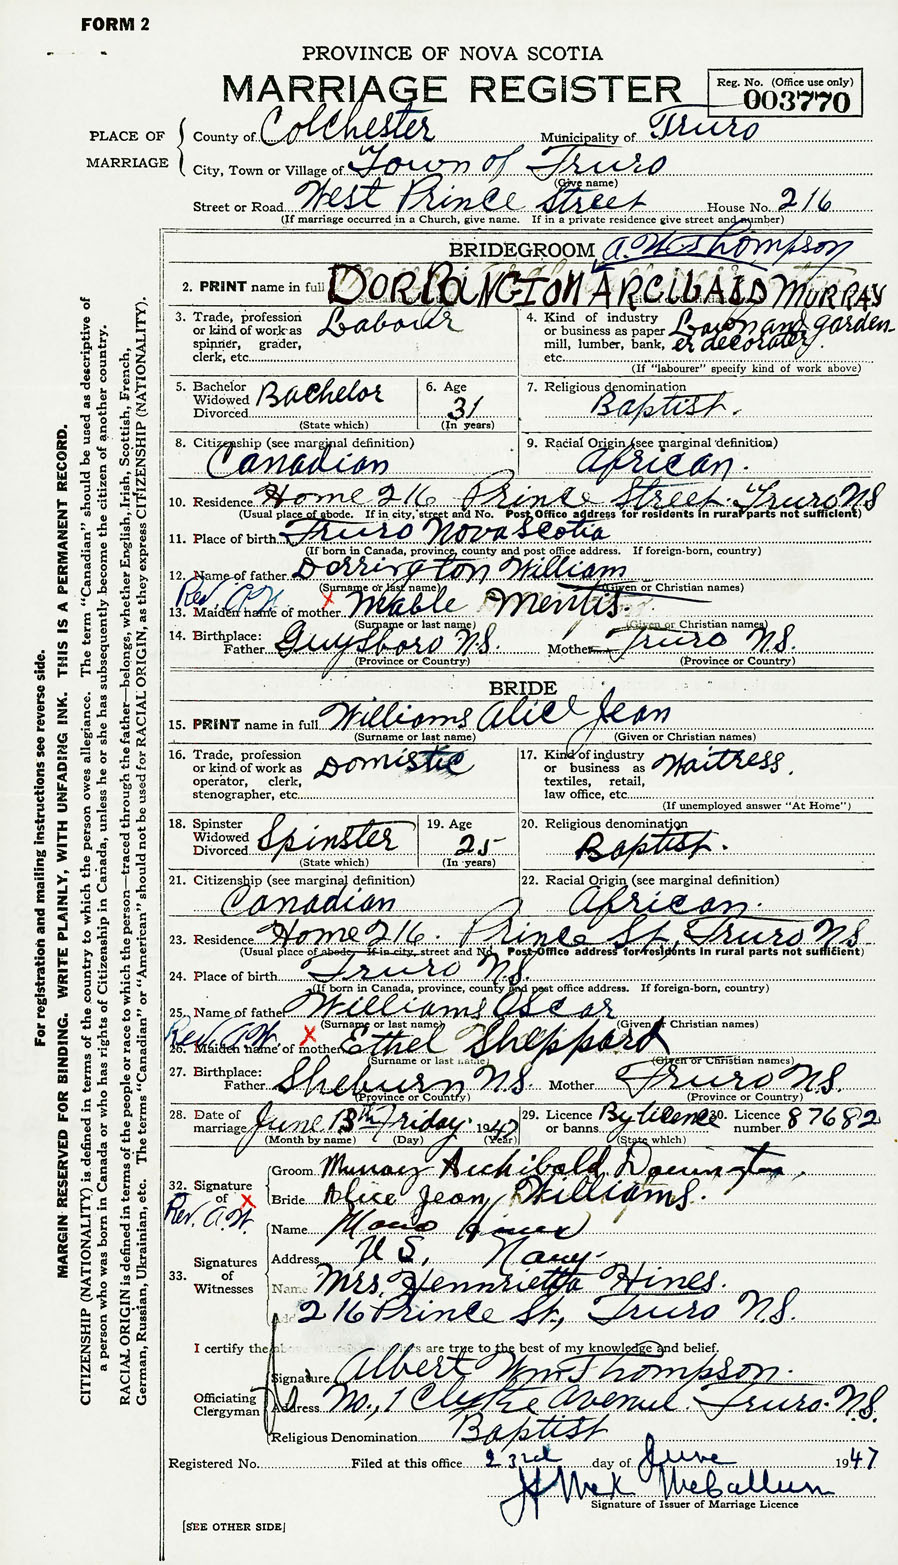 FORM 2
PROVINCE OF NOVA SCOTIA
MARRIAGE REGISTER
Reg. No. (Office use only)
003770
PLACE OF MARRIAGE
County of Colchester Municipality of Truro
City, Town or Village of Town of Truro
(Give name)
Street or Road West Prince Street House No. 216
(If marriage occurred in a Church, give name. If in a private residence give street and number)
BRIDEGROOM A. W. Thompson
2. PRINT name in full DORRINGTON ARCIBALD MURRAY
3. Trade, profession or kind of work as spinner, grader, clerk, etc. Labour
4. Kind of industry or business as paper mill, lumber, bank, etc. Lawn and gardener decorater.
(If "labourer" specify kind of work above)
5. Bachelor Widowed Divorced Bachelor
(State which)
6. Age 31
(In years)
7. Religious denomination Baptist.
8. Citizenship (see marginal definition) Canadian
9. Racial Origin (see marginal definition) African.
10. Residence Home 216 Prince Street Truro NS
(Usual place of abode. If in city, street and No. Post Office address for residents in rural parts not sufficient)
11. Place of birth Truro Nova Scotia
(If born in Canada, province, county and post office address. If foreign-born, country)
12. Name of father Dorrington William
(Surname or last name) (Given or Christian names)
Rev. A.W. x
13. Maiden name of mother Mable Mentis.
(Surname or last name) (Given or Christian names)
14. Birthplace: Father Guysboro N.S. Mother Truro N.S.
(Province or Country) (Province or Country)
BRIDE
15. PRINT name in full Williams Alice Jean
(Surname or last name) (Given or Christian names)
16. Trade, profession or kind of work as operator, clerk, stenographer, etc. Domistic
17. Kind of industry or business as textiles, retail, law office, etc. Waitress.
(If unemployed answer "At Home")
18. Spinster Widowed Divorced Spinster
(State which)
19. Age 25
(In years)
20. Religious denomination Baptist.
21. Citizenship (see marginal definition) Canadian
22. Racial Origin (see marginal definition) African.
23. Residence Home 216. Prince St., Truro N.S
(Usual place of abode. If in city, street and No. Post Office address for residents in rural parts not sufficient)
24. Place of birth Truro N.S.
(If born in Canada, province, county and post office address. If foreign-born, country)
25. Name of father Williams Oscar
(Surname or last name) (Given or Christian names)
Rev. A.W. x
26. Maiden name of mother Ethel Sheppard
(Surname or last name) (Given or Christian names)
27. Birthplace: Father Sheburn N.S. Mother Truro N.S.
(Province or Country) (Province or Country)
28. Date of marriage June 13th Friday 1947
(Month by name) (Day) (Year)
29. Licence or banns By licence
(State which)
30. Licence number 87682
32. Signature of
Groom Murray Archibald Dorrington.
Bride Alice Jean Williams.
x Rev. A.W.
33. Signatures of Witnesses
Name
Address U.S. Navy.
Name Mrs. Hennrietta Hines.
Add 216 Prince St., Truro N.S.
I certify the above are true to the best of my knowledge and belief.
Officiating Clergyman
Signature Albert Wm Thompson.
Address No., 1 Clyde Avenue. Truro. N.S.
Religious Denomination Baptist
Registered No. Filed at this office 23rd day of June 1947
McCallum
Signature of Issuer of Marriage Licence
[SEE OTHER SIDE]
For registration and mailing instructions see reverse side.
MARGIN RESERVED FOR BINDING. WRITE PLAINLY, WITH UNFADING INK. THIS IS A PERMANENT RECORD.
CITIZENSHIP (NATIONALITY) is defined in terms of the country to which the person owes allegiance. The term "Canadian" should be used as descriptive of
a person who was born in Canada or who has rights of Citizenship in Canada, unless he or she has subsequently become the citizen of another country.
RACIAL ORIGIN is defined in terms of the people or race to which the person—traced through the father—belongs, whether English, Irish, Scottish, French,
German, Russian, Ukrainian, etc. The terms "Canadian" or "American" should not be used for RACIAL ORIGIN, as they express CITIZENSHIP (NATIONALITY).